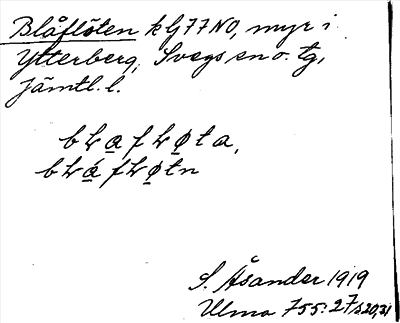 Blåflöten kLj77NO, myr i
Ytterberg, Svegs sn o. tg,
Jämtl. l.
bʟafʟøta,
bʟáfʟøtn
S. Åsander 1919
Ulma 755:27 s 20,21